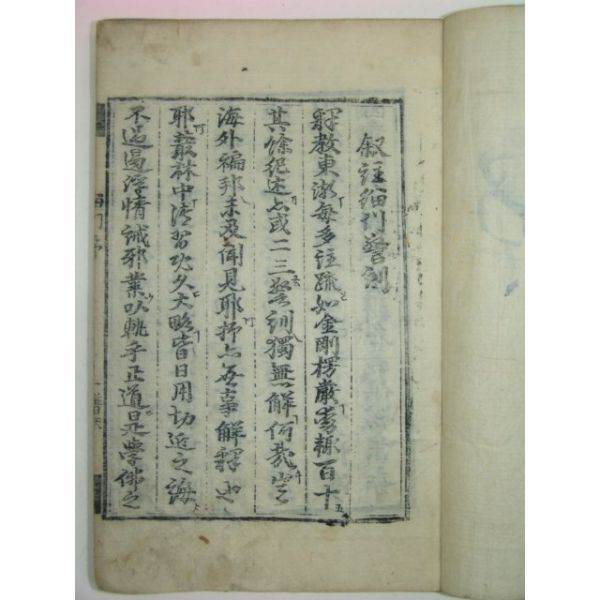 叙註緇門警訓
釋教東漸每多註疏如金剛楞嚴百十
其條紀述亦或二三警訓獨無解何哉豈
海外編邦未及聞見耶抑亦無事解釋也
耶叢林中習既久大略皆日用切近之誨
不過遏浮情誡邪業以軌乎正道是學佛之